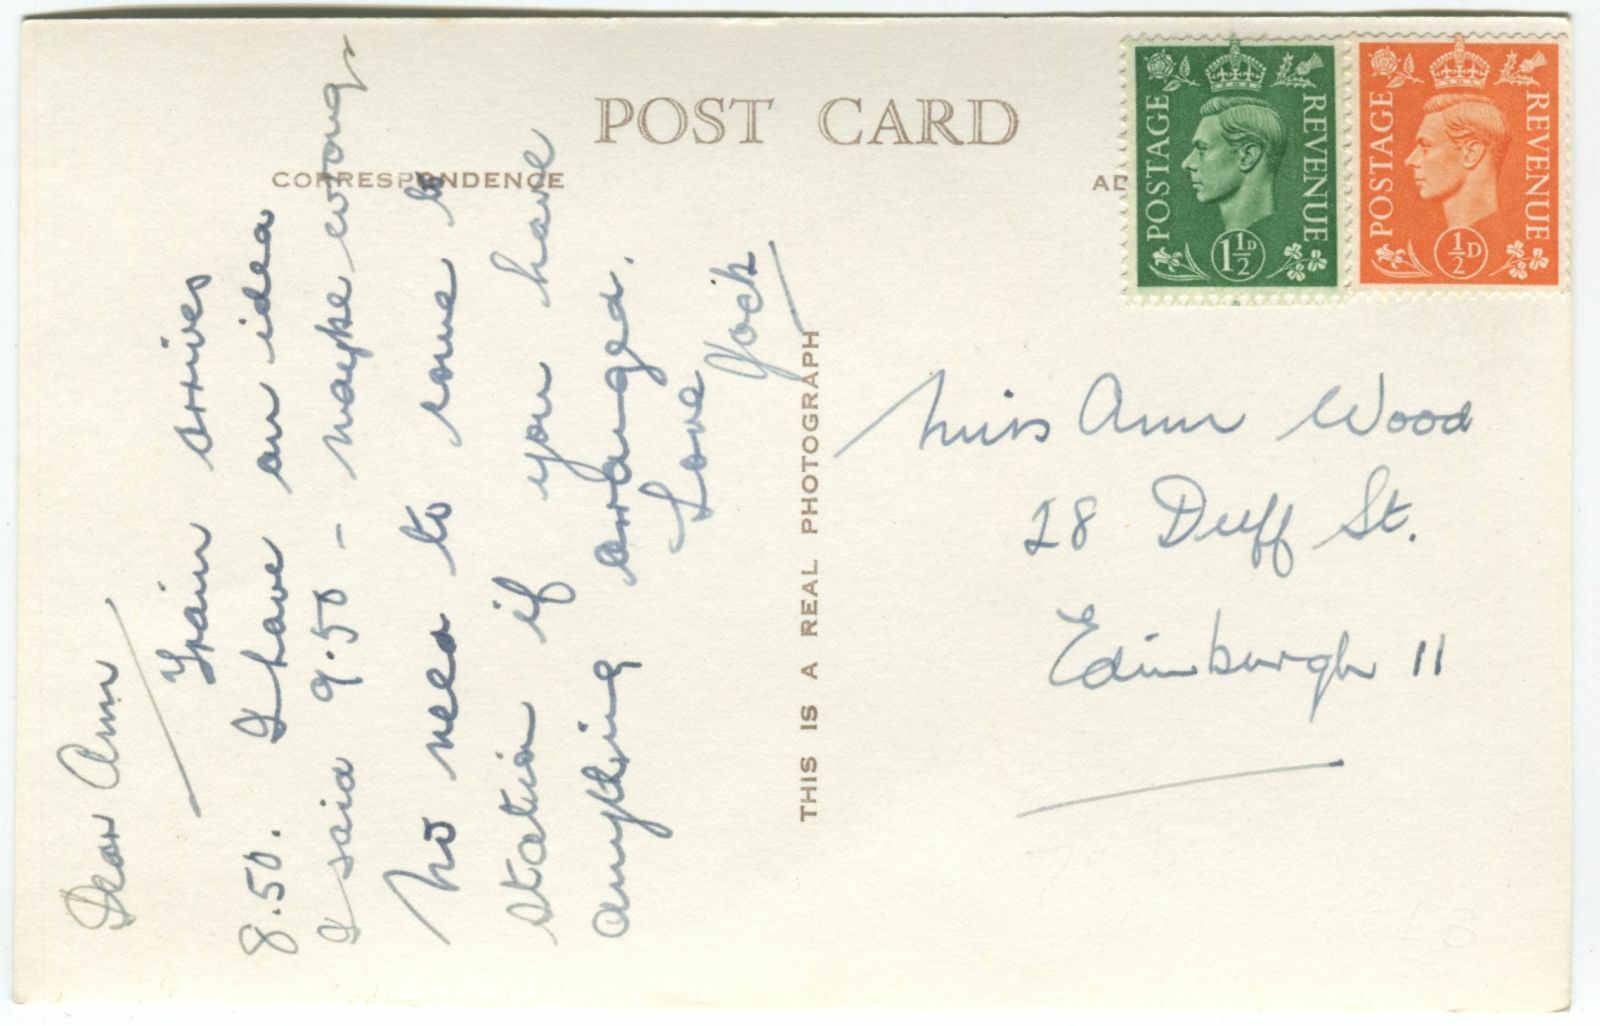 POST CARD
CORRESPONDENCE
AD
POSTAGE
REVENUE
1½D
POSTAGE
REVENUE
½D
Dear Ann
Train arrives
8.50. I have an idea
I said 9.50 - maybe wrong
No need to come to
station if you have
anything arranged.
Love
Jock
THIS IS A REAL PHOTOGRAPH
Miss Ann Wood
28 Duff St.
Edinburgh 11